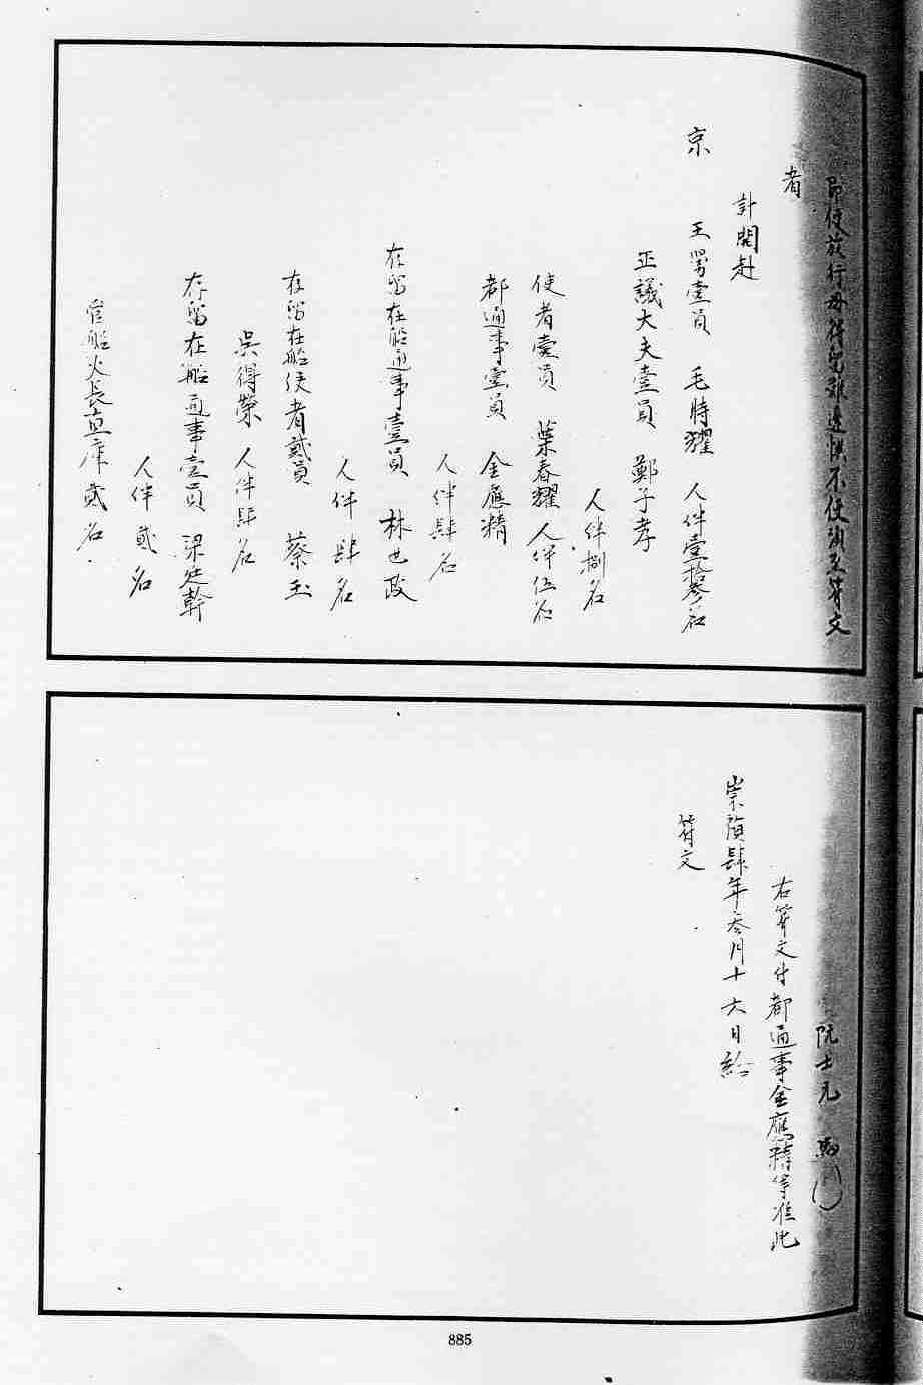 即使放行毋得留難遲悞不便須至符文
者
計開赴
京
王舅壹員　毛時耀　人伴壹拾參名
正議大夫壹員　鄭子孝
人伴捌名
使者壹員　葉春耀　人伴伍名
都通事壹員　金應精
人伴肆名
存留在船通事壹員　林世政
人伴肆名
存留在船使者貳員　蔡玉
吳得榮　人伴肆名
存留在船通事壹員　梁廷幹
人伴貳名
管船火長直庫貳名
阮士元　馬
右符文付都通事金應精等准此
崇禎肆年叁月十六日給
符文
885